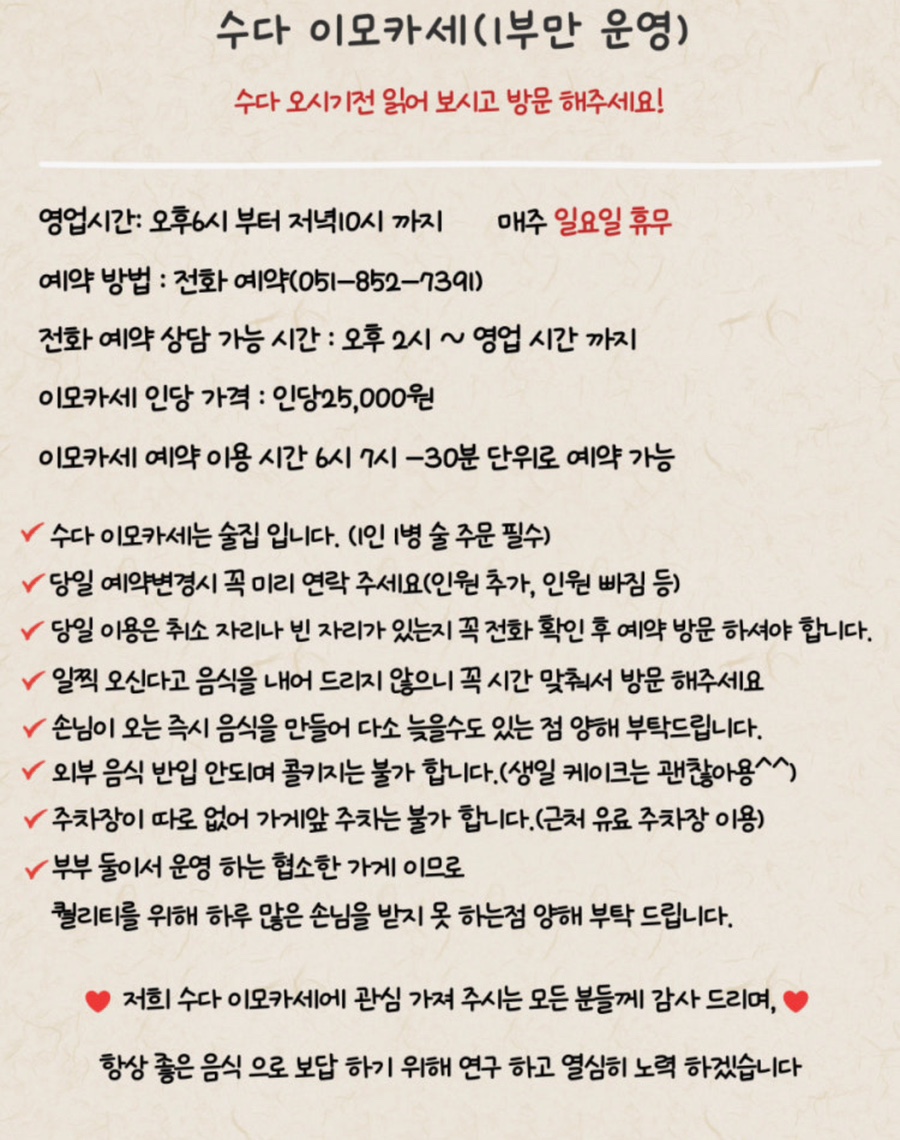 수다 이모카세(1부만 운영)
수다 오시기전 읽어 보시고 방문 해주세요!
영업시간: 오후6시 부터 저녁10시 까지 매주 일요일 휴무
예약 방법 : 전화 예약(051-852-7391)
전화 예약 상담 가능 시간 : 오후 2시 ~ 영업 시간 까지
이모카세 인당 가격 : 인당25,000원
이모카세 예약 이용 시간 6시 7시 -30분 단위로 예약 가능
✓ 수다 이모카세는 술집 입니다. (1인 1병 술 주문 필수)
✓ 당일 예약변경시 꼭 미리 연락 주세요(인원 추가, 인원 빠짐 등)
✓ 당일 이용은 취소 자리나 빈 자리가 있는지 꼭 전화 확인 후 예약 방문 하셔야 합니다.
✓ 일찍 오신다고 음식을 내어 드리지 않으니 꼭 시간 맞춰서 방문 해주세요
✓ 손님이 오는 즉시 음식을 만들어 다소 늦을수도 있는 점 양해 부탁드립니다.
✓ 외부 음식 반입 안되며 콜키지는 불가 합니다.(생일 케이크는 괜찮아용^^)
✓ 주차장이 따로 없어 가게앞 주차는 불가 합니다.(근처 유료 주차장 이용)
✓ 부부 둘이서 운영 하는 협소한 가게 이므로
퀄리티를 위해 하루 많은 손님을 받지 못 하는점 양해 부탁 드립니다.
♥ 저희 수다 이모카세에 관심 가져 주시는 모든 분들께 감사 드리며, ♥
항상 좋은 음식 으로 보답 하기 위해 연구 하고 열심히 노력 하겠습니다